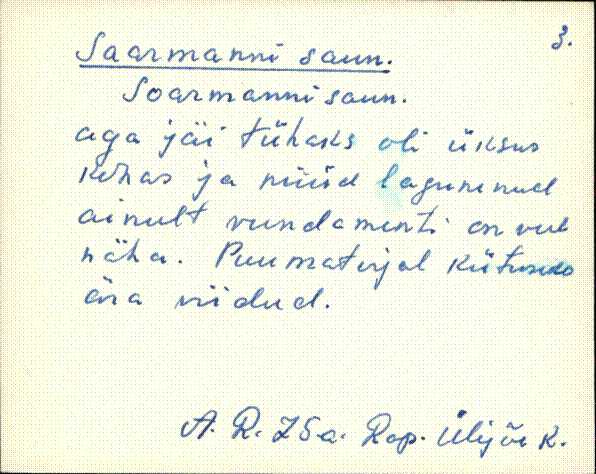 3.
Saarmanni saun.
Soarmanni saun.
aga jäi tühaks oli üksus
kohas ja nüüd lagunenud
ainult vundamenti on veel
näha. Puumaterjal kütuseks
ära viidud.
A. R. ZSa. Rap. Ülijõe k.